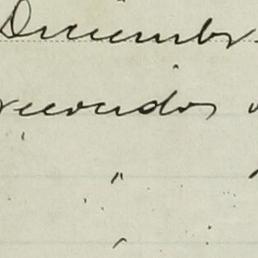 Diciembr
recuerdos
"